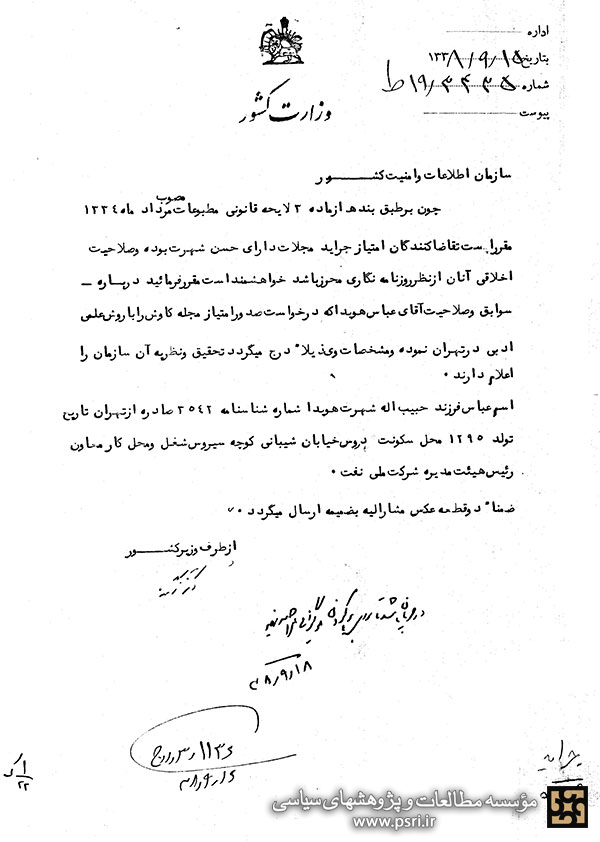 اداره
بتاریخ ۱۳۳۸/۹/۱۵
شماره ۱۹/۳۴۳۵ ط
پیوست
وزارت کشور
سازمان اطلاعات وامنیت کشـــــــــور
مصوب
چون برطبق بند هـ ازماده ۲ لایحه قانونی مطبوعات مرداد ماه ۱۳۳٤
مقرراست تقاضاکنندگان امتیاز جراید مجلات دارای حسن شهرت بوده وصلاحیت
اخلاقی آنان ازنظرروزنامه نگاری محرزباشد خواهشمند است مقررفرمائید دربـاره ـ
سوابق وصلاحیت آقای عباس هویدا که درخواست صدورامتیاز مجله کاوش را باروش علمی
ادبی درتهران نموده ومشخصات وی ذیلا" درج میگردد تحقیق ونظریه آن سازمان را
اعلام دارند ۰
اسم عباس فرزند حبیب اله شهرت هویدا شماره شناسنامه ۳۵٤۲ صادره ازتهران تاریخ
تولد ۱۲۹۵ محل سکونت دروس خیابان شیبانی کوچه سیروس شغل ومحل کار معاون
رئیس هیئت مدیره شرکت ملی نفت ۰
ضمنا" دوقطعه عکس مشارالیه بضمیمه ارسال میگردد ۰
ازطرف وزیرکشـــــــور
۳۸/۹/۱۸
۳۸/۹/۱۶
مؤسسه مطالعات و پژوهشهای سیاسی
www.psri.ir